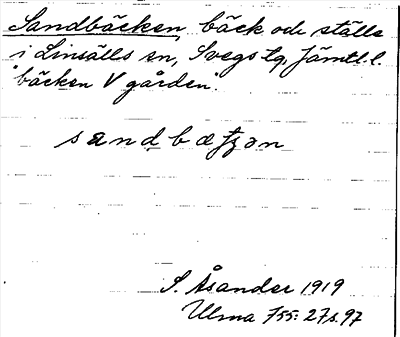 Sandbäcken, bäck och ställe
i Linsälls sn, Svegs tg, Jämtl. l.
"bäcken V gården".
sandbæʈʂən
S. Åsander 1919
Ulma 755: 27 s. 97